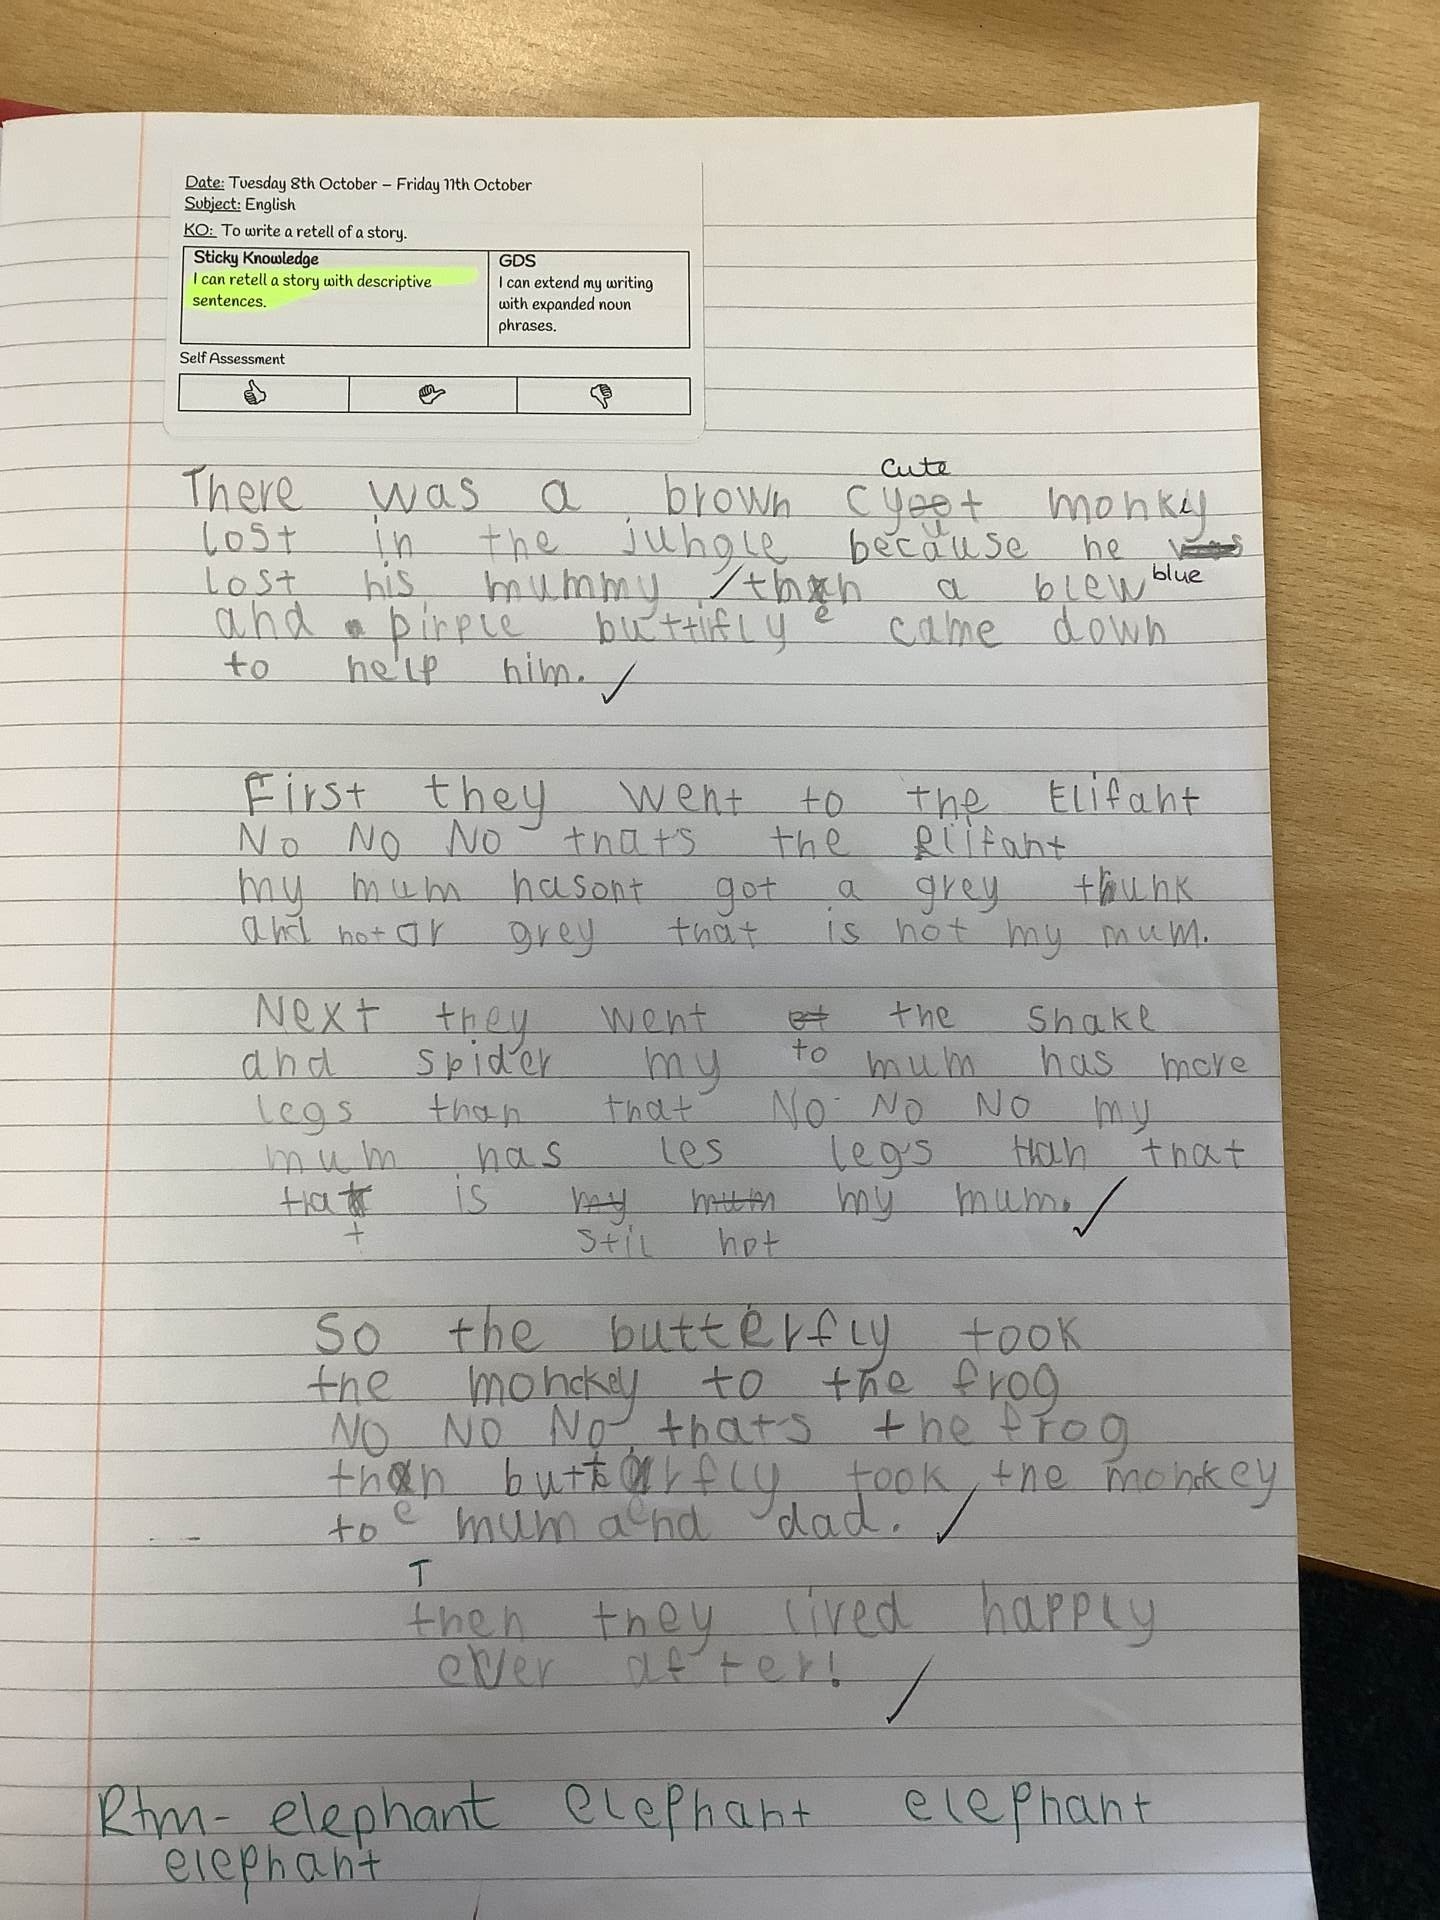 Date: Tuesday 8th October – Friday 11th October
Subject: English
KO: To write a retell of a story.
Sticky Knowledge
I can retell a story with descriptive
sentences.
GDS
I can extend my writing
with expanded noun
phrases.
Self Assessment
cute
There was a brown cyoot monky
lost in the jungle because he was
lost his mummy / then a blew blue
and pirple buttifly came down
to help him. ✓
First they went to the Elifant
No No No thats the Elifant
my mum hasont got a grey thunk
and not or grey that is not my mum.
Next they went et the snake
and spider my to mum has more
legs than that No No No my
mum has les legs than that
that is my mum my mum. ✓
t stil not
So the butterfly took
the monckey to the frog
No No No thats the frog
then butterfly took the monckey
to mum and dad. ✓
T
then they lived happly
ever after! ✓
Rtm- elephant elephant elephant
elephant